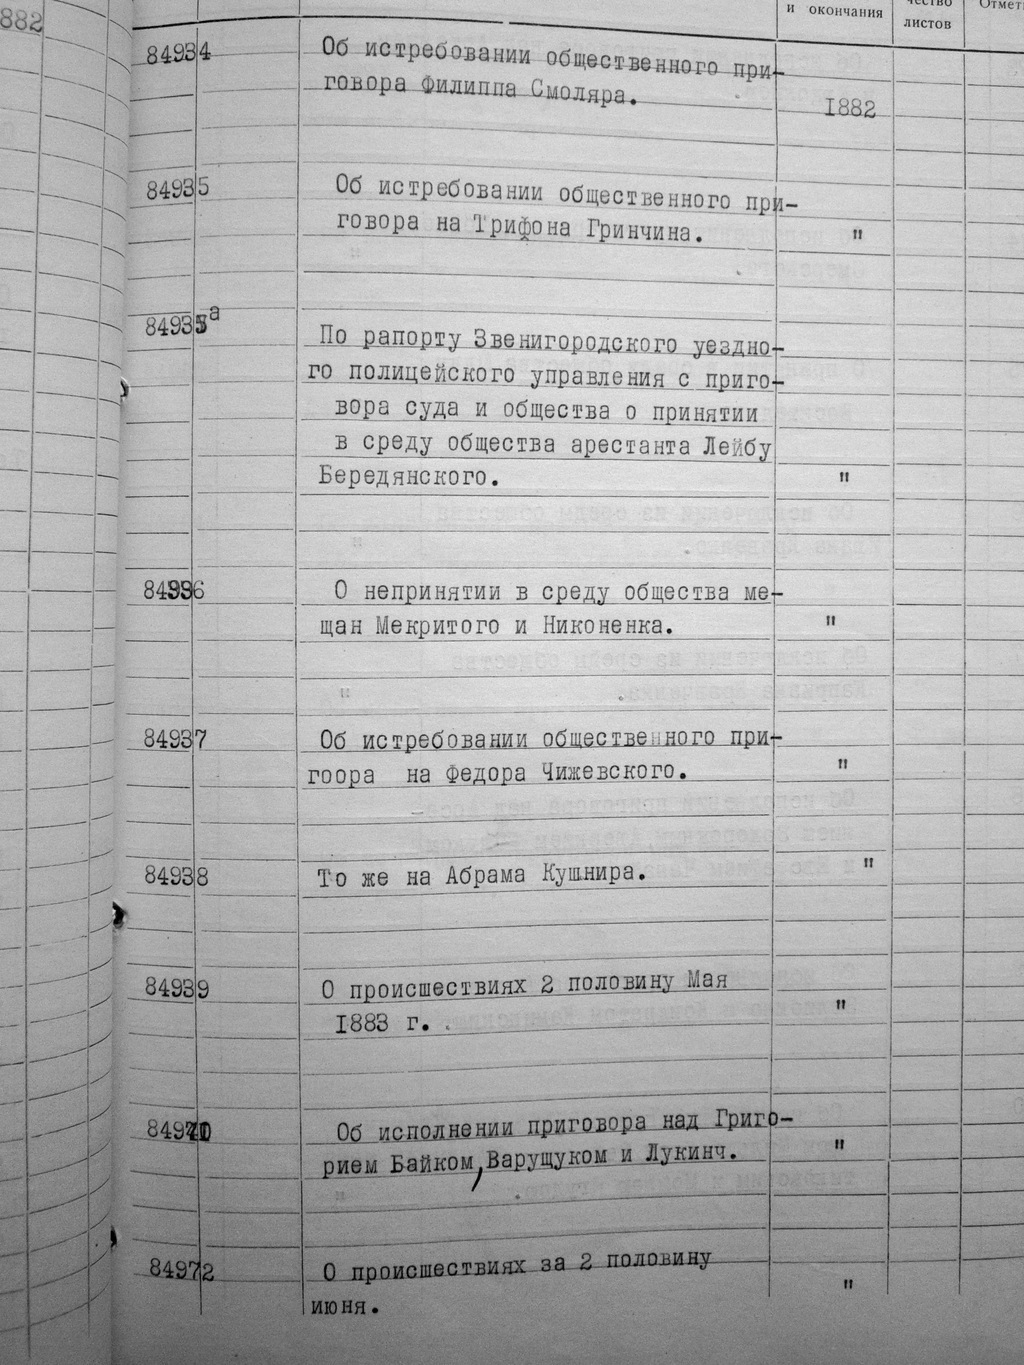 882
и окончания
чество
листов
Отмет
84934 Об истребовании общественного при-
говора Филиппа Смоляра.
1882
84935 Об истребовании общественного при-
говора на Трифона Гринчина. "
84935а
По рапорту Звенигородского уездно-
го полицейского управления с приго-
вора суда и общества о принятии
в среду общества арестанта Лейбу
Бередянского. "
84936 О непринятии в среду общества ме-
щан Мекритого и Никоненка. "
84937 Об истребовании общественного при-
гоора на Федора Чижевского. "
84938 То же на Абрама Кушнира. "
84939 О происшествиях 2 половину Мая
1883 г. "
Об исполнении приговора над Григо-
рием Байком, Варущуком и Лукинч. "
84972 О происшествиях за 2 половину
июня. "